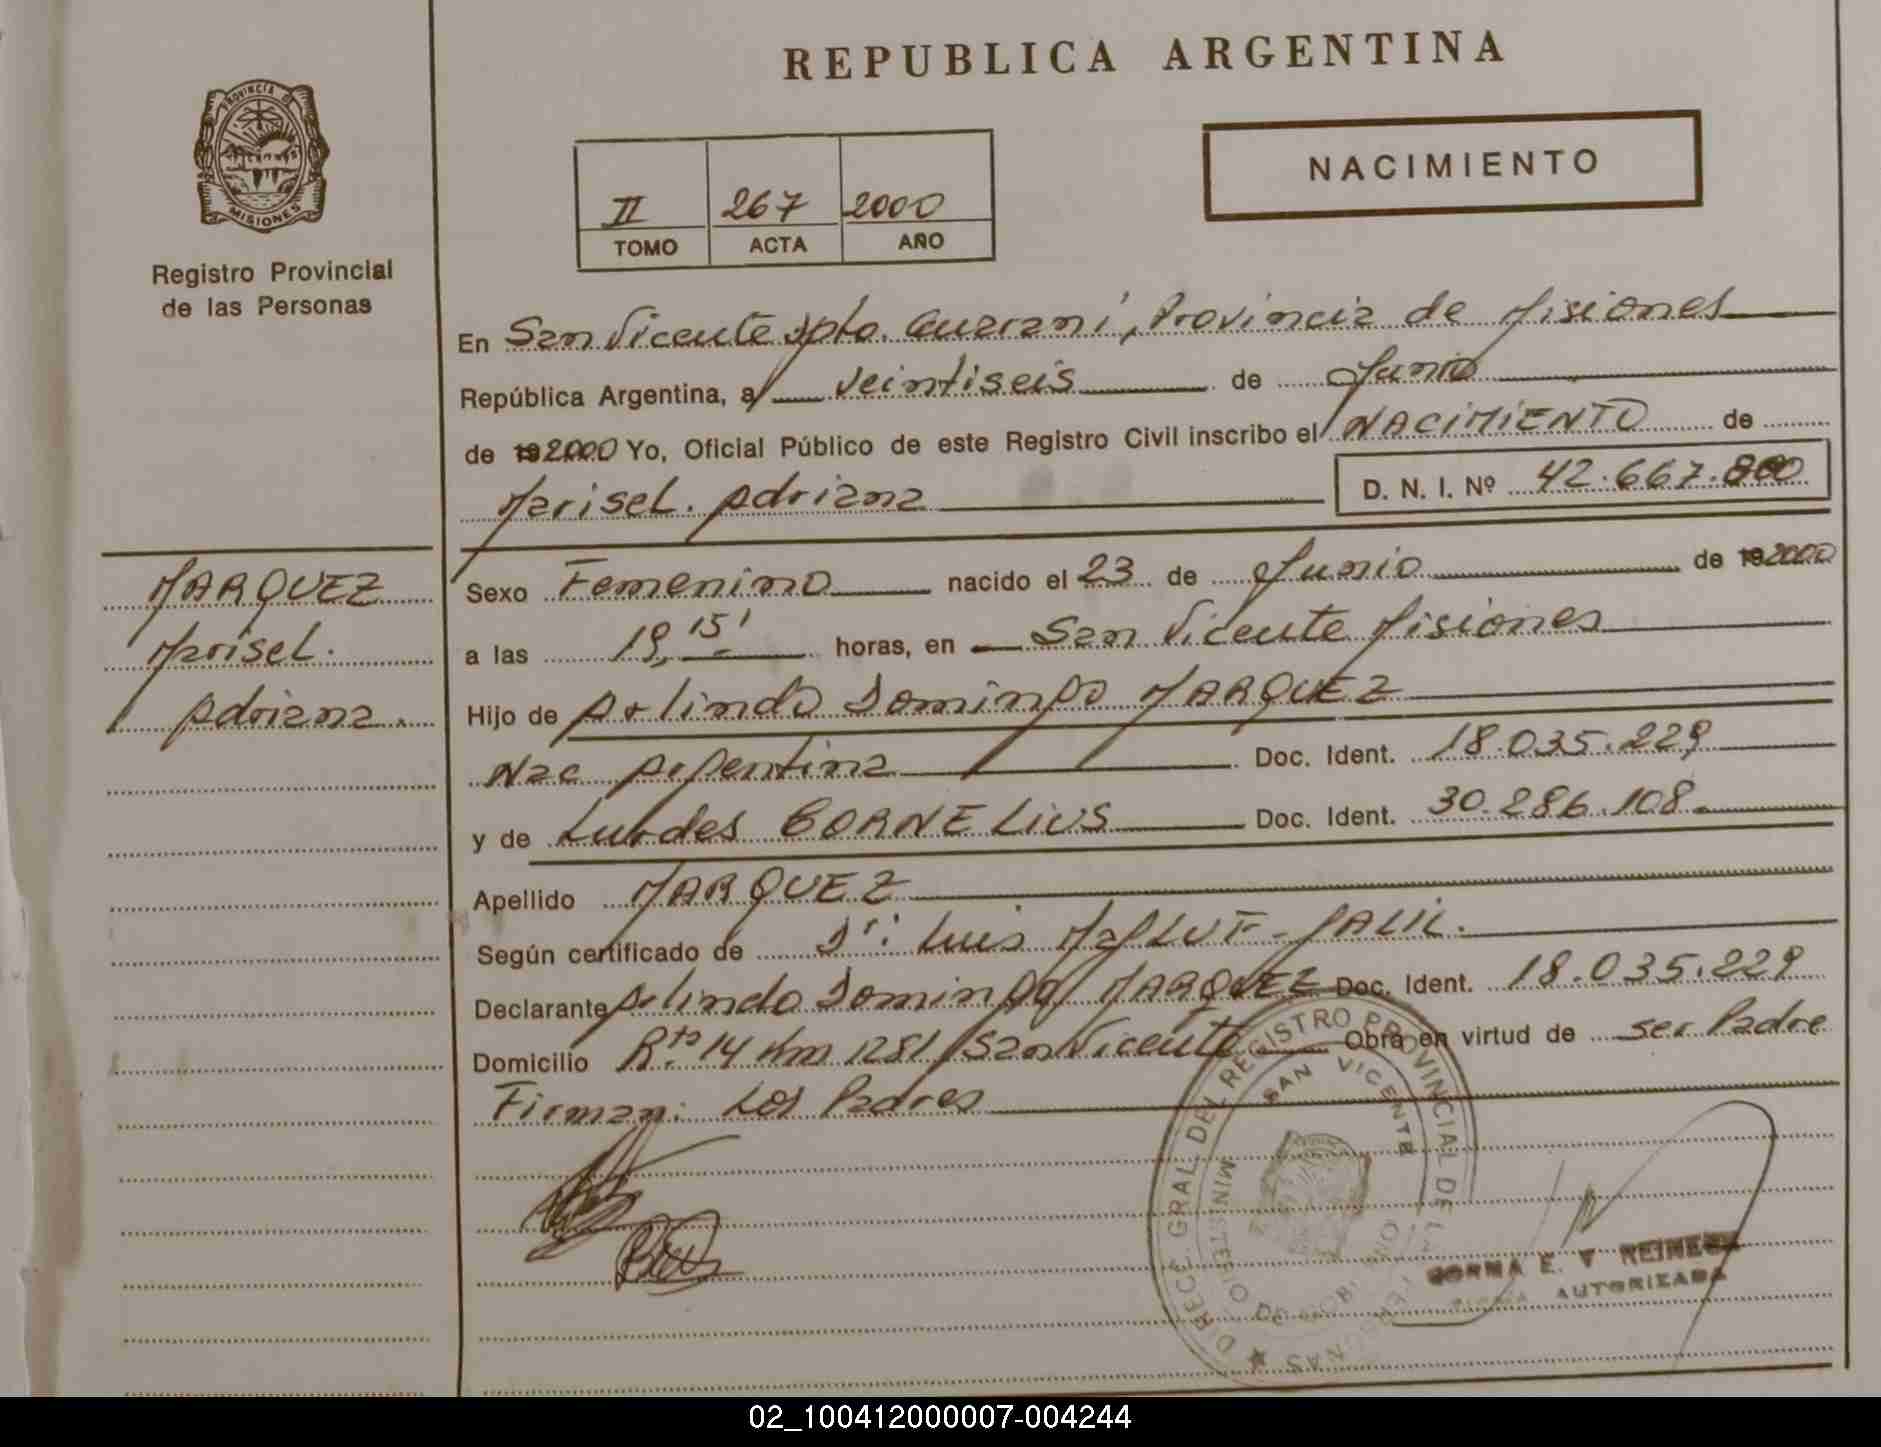 REPUBLICA ARGENTINA
PROVINCIA DE
MISIONES
Registro Provincial
de las Personas
NACIMIENTO
II 267 2000
TOMO ACTA AÑO
En San Vicente Dpto. Guarani, Provincia de Misiones
República Argentina, a veintiseis de Junio
de 192000 Yo, Oficial Público de este Registro Civil inscribo el NACIMIENTO de
Marisel. Adriana
D. N. I. Nº 42.667.800
MARQUEZ
Marisel.
Adriana.
Sexo Femenino nacido el 23 de Junio de 192000
a las 19,15' horas, en San Vicente Misiones
Hijo de Arlindo Domingo MARQUEZ
Nac Argentina Doc. Ident. 18.035.229
y de Lurdes CORNELIUS Doc. Ident. 30.286.108
Apellido MARQUEZ
Según certificado de Dr: Luis JALIL.
Declarante Arlindo Domingo MARQUEZ Doc. Ident. 18.035.229
Domicilio Rta 14 Km 1281 San Vicente Obra en virtud de ser Padre
Firman: Los Padres
DIRECC. GRAL. DEL REGISTRO PROVINCIAL DE LAS PERSONAS
SAN VICENTE
MINISTERIO DE GOBIERNO
E. V. 
FIRMA AUTORIZADA
02_100412000007-004244